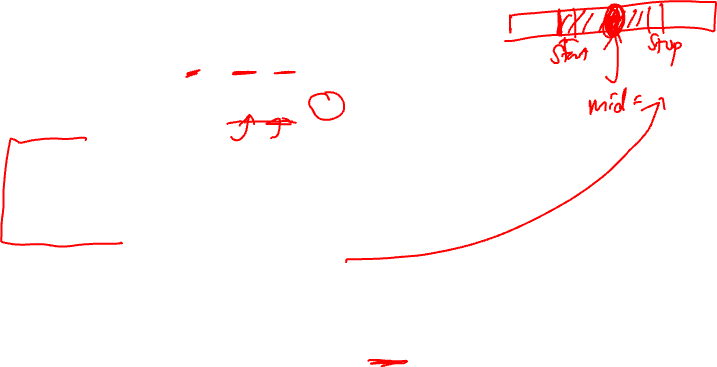 start stop
mid =